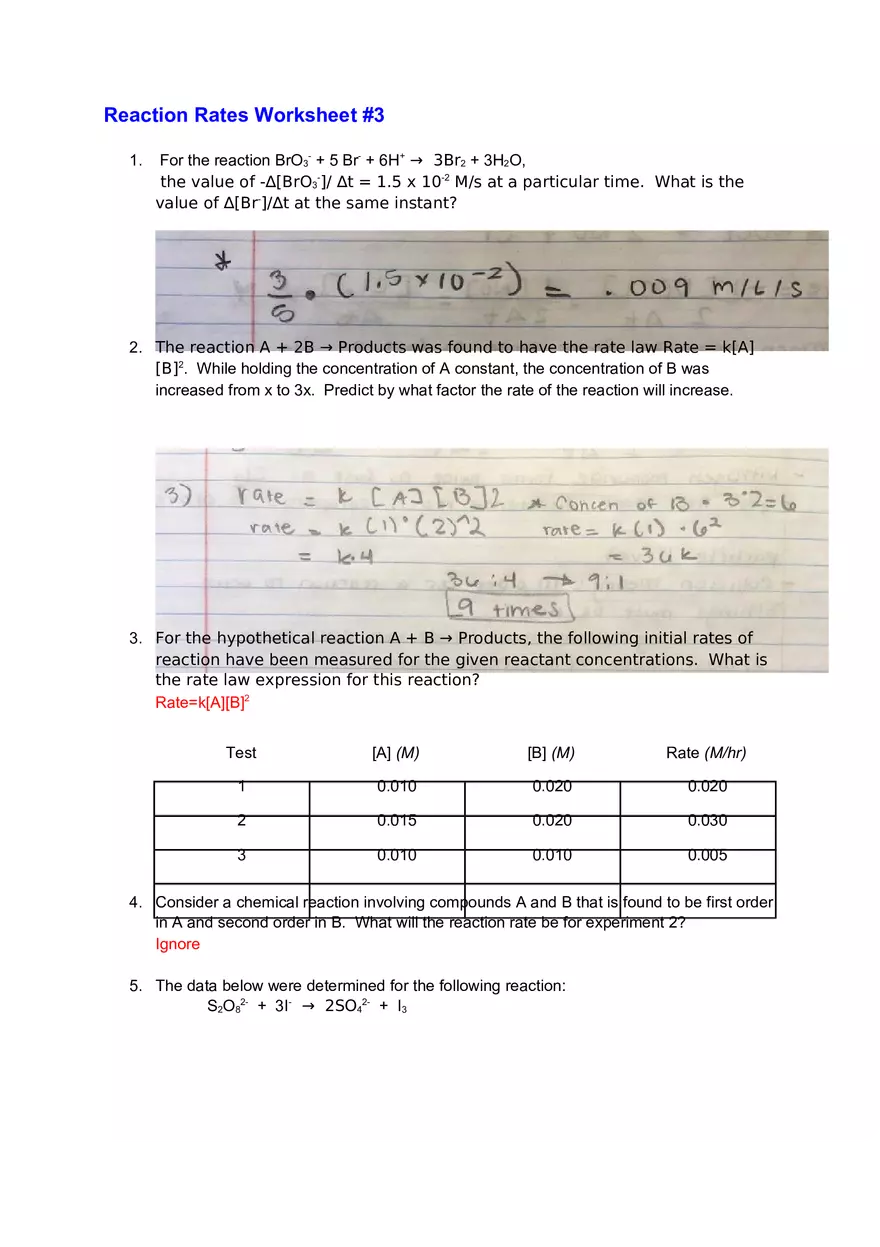 Reaction Rates Worksheet #3
1. For the reaction BrO₃⁻ + 5 Br⁻ + 6H⁺ → 3Br₂ + 3H₂O,
the value of -Δ[BrO₃⁻]/ Δt = 1.5 x 10⁻² M/s at a particular time. What is the
value of Δ[Br⁻]/Δt at the same instant?
* 3/5 • (1.5 x 10⁻²) = .009 m/L/s
2. The reaction A + 2B → Products was found to have the rate law Rate = k[A]
[B]². While holding the concentration of A constant, the concentration of B was
increased from x to 3x. Predict by what factor the rate of the reaction will increase.
3) rate = k [A] [B]2 * Concen of B • 3•2=6
rate = k (1)•(2)^2 rate = k(1) • 6²
= k•4 = 36k
36:4 → 9:1
9 times
3. For the hypothetical reaction A + B → Products, the following initial rates of
reaction have been measured for the given reactant concentrations. What is
the rate law expression for this reaction?
Rate=k[A][B]²
Test [A] (M) [B] (M) Rate (M/hr)
1 0.010 0.020 0.020
2 0.015 0.020 0.030
3 0.010 0.010 0.005
4. Consider a chemical reaction involving compounds A and B that is found to be first order
in A and second order in B. What will the reaction rate be for experiment 2?
Ignore
5. The data below were determined for the following reaction:
S₂O₈²⁻ + 3I⁻ → 2SO₄²⁻ + I₃